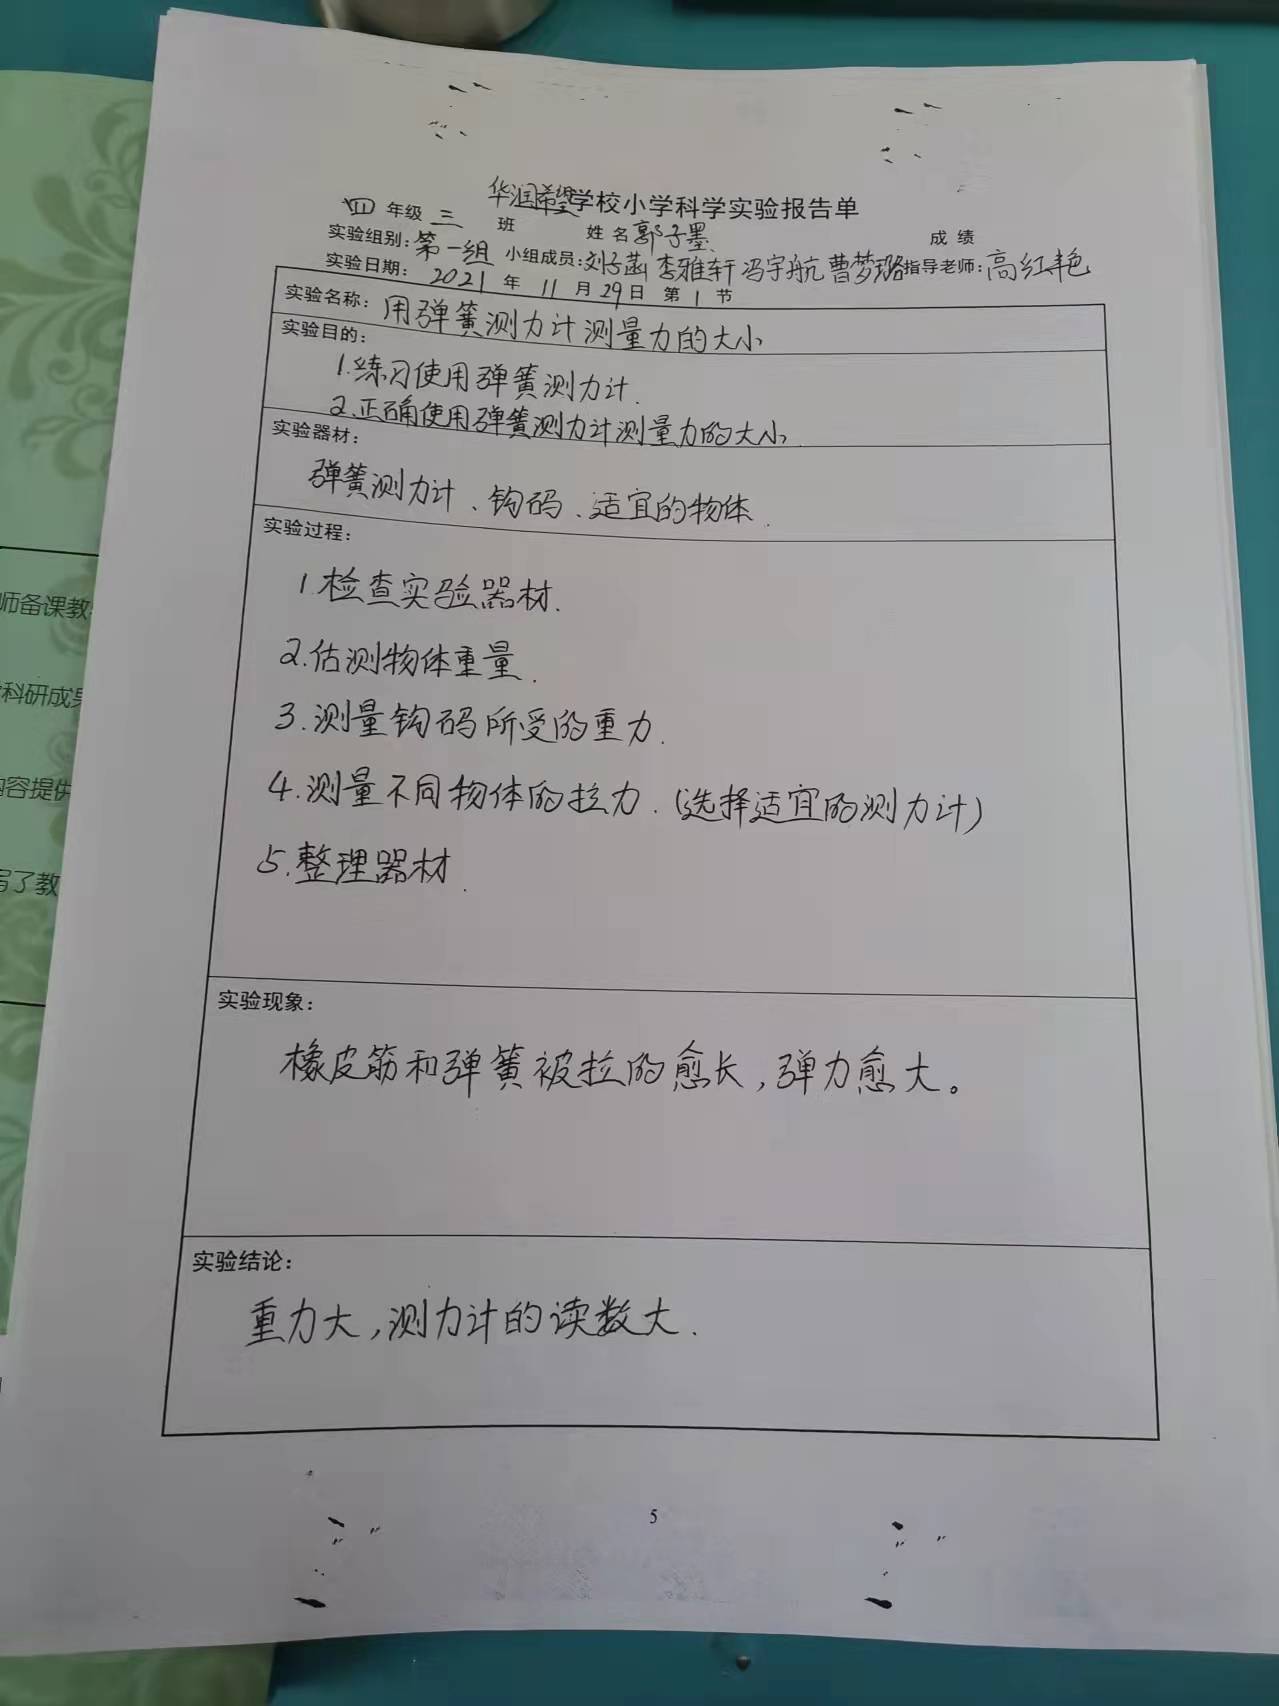 华润希望学校小学科学实验报告单
四 年级 三 班 姓名 郭子墨 成绩
实验组别: 第一组 小组成员: 刘子菡 李雅轩 冯宇航 曹梦璐 指导老师: 高红艳
实验日期: 2021 年 11 月 29 日 第 1 节
实验名称: 用弹簧测力计测量力的大小
实验目的:
1.练习使用弹簧测力计.
2.正确使用弹簧测力计测量力的大小.
实验器材:
弹簧测力计、钩码、适宜的物体.
实验过程:
1.检查实验器材.
2.估测物体重量.
3.测量钩码所受的重力.
4.测量不同物体的拉力.(选择适宜的测力计)
5.整理器材.
实验现象:
橡皮筋和弹簧被拉的愈长,弹力愈大。
实验结论:
重力大,测力计的读数大.
5
师备课教
科研成果
内容提供
写了教